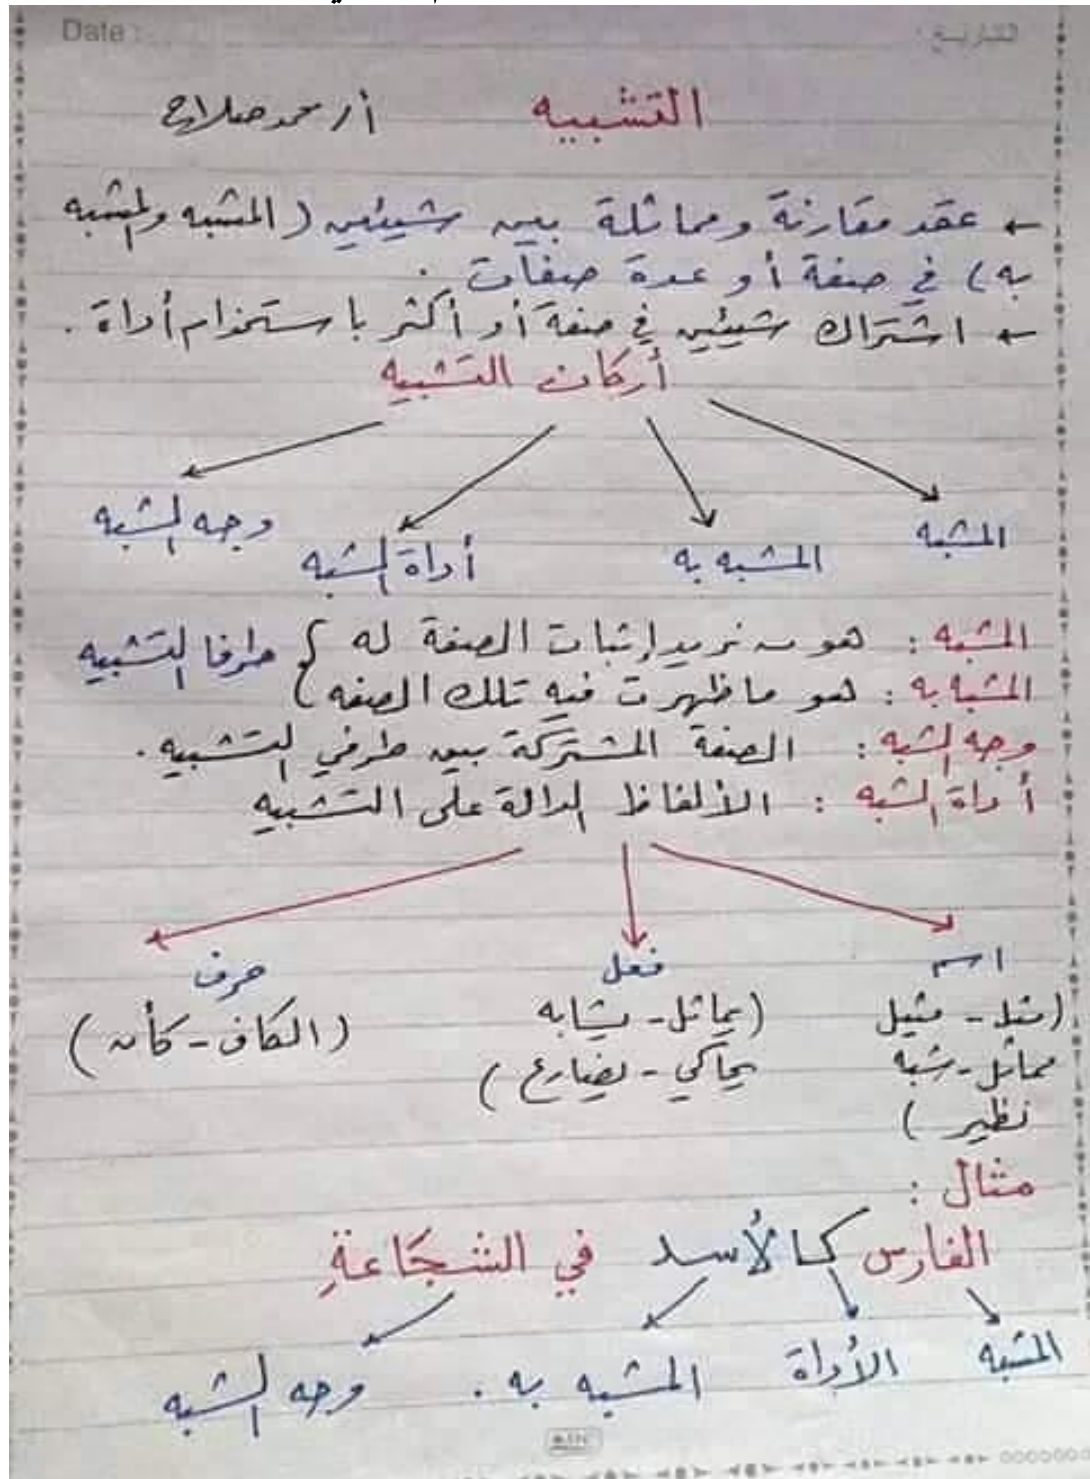 Date : التاريخ :
التشبيه أ/ محمد صلاح
← عقد مقارنة ومماثلة بين شيئين ( المشبه والمشبه
به ) في صفة أو عدة صفات .
← اشتراك شيئين في صفة أو أكثر باستخدام أداة .
أركان التشبيه
المشبه المشبه به أداة الشبه وجه الشبه
المشبه : هو من نريد إثبات الصفة له } طرفا التشبيه
المشبه به : هو ما ظهرت فيه تلك الصفه
وجه الشبه : الصفة المشتركة بين طرفي التشبيه .
أداة الشبه : الألفاظ الدالة على التشبيه
اسم فعل حرف
( مثل - مثيل ( يماثل - يشابه ( الكاف - كأن )
مماثل - شبه يحاكي - يضارع )
نظير )
مثال :
الفارس كالأسد في الشَجَاعةِ
المشبه الأداة المشبه به . وجه الشبه